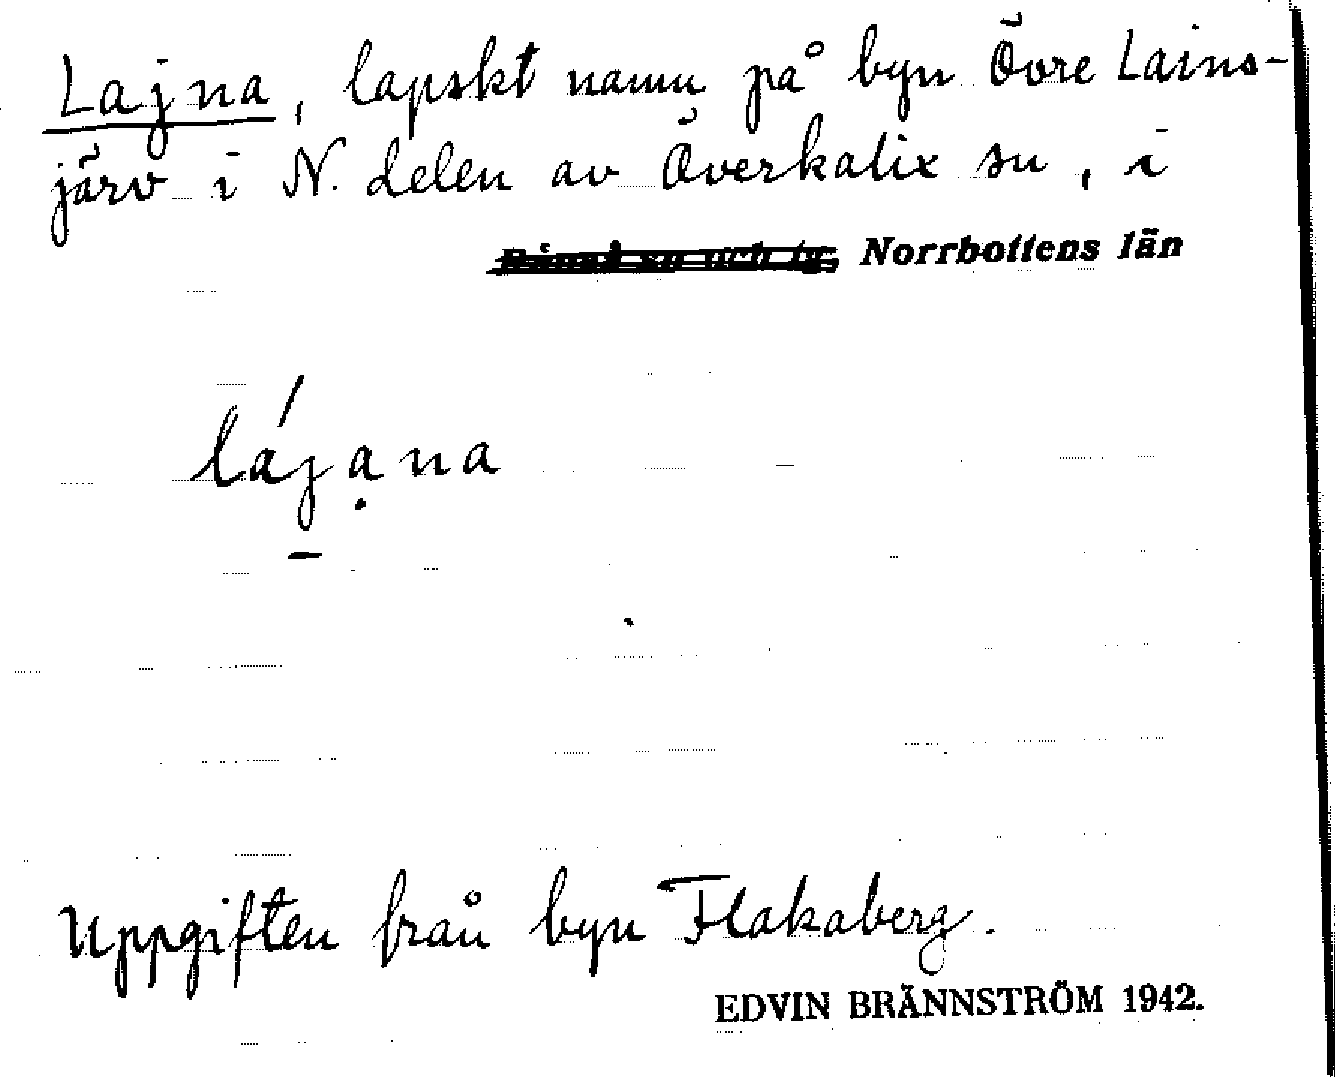 Lajna, lapskt namn på byn Övre Lains-
järv i N. delen av Överkalix sn, i
Råneå sn och tg, Norrbottens län
lájạna
Uppgiften från byn Flakaberg.
EDVIN BRÄNNSTRÖM 1942.